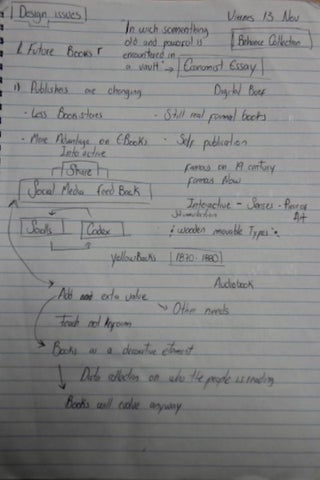 Design issues
13 Nov
In wich something
old and powerful is
encountered in
a vault
Behance Collection
Future Books
Economist Essay
Publishers are changing
Digital
- Less Bookstores
- Still read formal books
- More Advantage on E-Books
- Self publication
Interactive
Share
Social Media Feed Back
famous on 19 century
famous Now
Interactive - Senses - Piece of Art
Stimulation
Scrolls
Codex
"wooden movable Types"
yellowBacks
1870 - 1880
Audiobook
Add extra value
Other needs
Touch not
Books as a decorative element
Data collection on who the people is reading
Books will evolve anyway